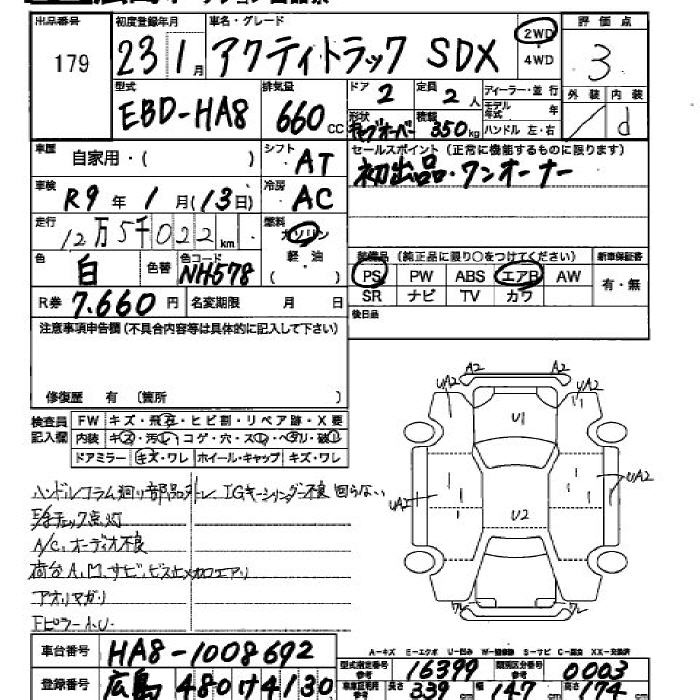 出品番号 初度登録年月 車名・グレード 2WD 評価点
179 23 1月 アクティトラック SDX 4WD 3
型式 排気量 ドア 定員 ディーラー・並行 外装 内装
EBD-HA8 660cc 2 2人 モデル年式 年 d
形状 積載 ハンドル 左・右
350kg
車歴 自家用・( ) シフト AT セールスポイント(正常に機能するものに限ります)
初出品・ワンオーナー
車検 R9年1月(13日) 冷房 AC
走行 12万5千022km 燃料 ガソリン
軽油
( )
色 白 色替 色コード NH578 装備品(純正品に限り○をつけてください) 新車保証書
PS PW ABS エアB AW 有・無
SR ナビ TV カワ
R券 7,660円 名変期限 月 日 後日品
注意事項申告欄(不具合内容等は具体的に記入して下さい)
修復歴 有 (箇所 )
検査員記入欄 FW キズ・飛石・ヒビ割・リペア跡・X要
内装 キズ・汚れ・コゲ・穴・スレ・ヘタリ・破れ
ドアミラー キズ・ワレ ホイール・キャップ キズ・ワレ
ハンドルコラム廻り部品ナシ IGキーシリンダー不良 回らない
チェック点灯
A/C、オーディオ不良
荷台A、M、サビ、ビス止メカロエアリ
アオリマガリ
FピラーA.U.
A2 A2
UA2 UA2
U1
UA2 UA2
U2
ワレ ワレ
A-キズ E-エクボ U-凹み W-補修跡 S-サビ C-腐食 XX-交換済
車台番号 HA8-1008692
型式指定番号 参考 16399 類別区分番号 参考 0003
登録番号 広島 480 け 4130
長さ 339 cm 幅 147 cm 高さ 174 cm